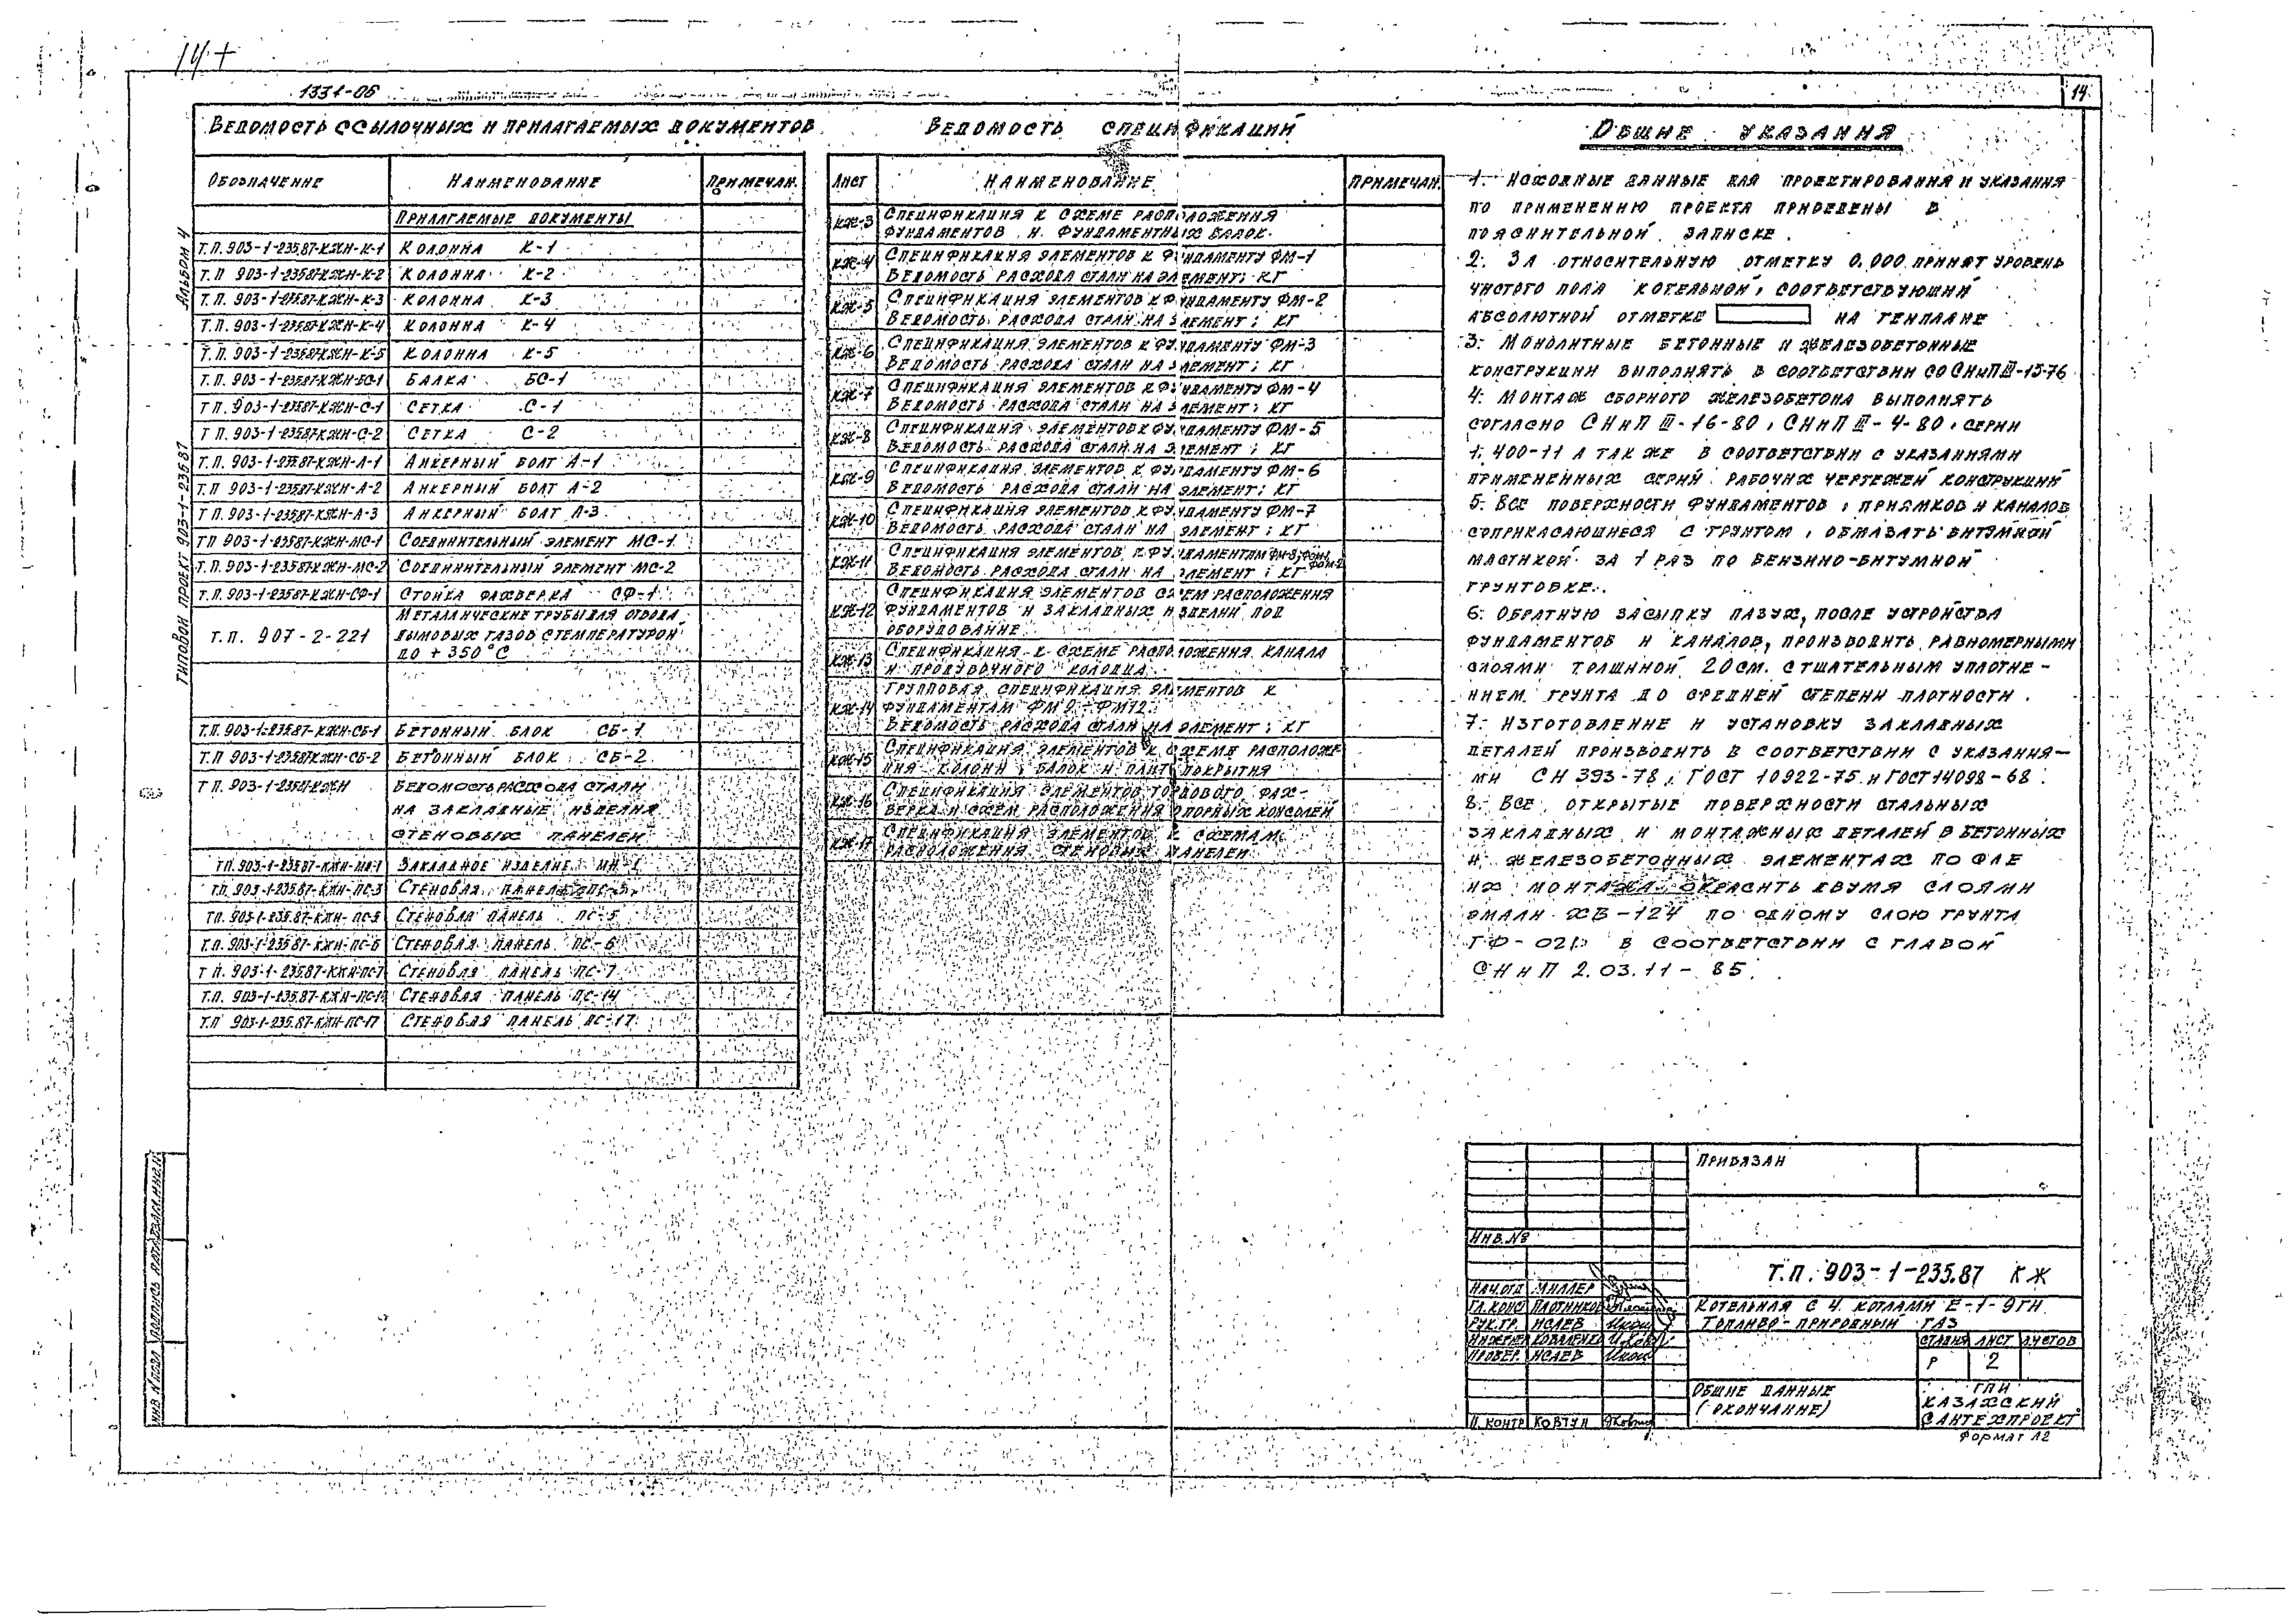 14+
1331-06
14
Альбом 4
Типовой проект 903-1-235.87
Ведомость ссылочных и прилагаемых документов
Обозначение Наименование Примечан.
Прилагаемые документы
Т.П. 903-1-235.87-КЖИ-К-1 Колонна К-1
Т.П 903-1-235.87-КЖИ-К-2 Колонна К-2
Т.П. 903-1-235.87-КЖИ-К-3 Колонна К-3
Т.П. 903-1-235.87-КЖИ-К-4 Колонна К-4
Т.П. 903-1-235.87-КЖИ-К-5 Колонна К-5
Т.П. 903-1-235.87-КЖИ-БС-1 Балка БС-1
Т П. 903-1-235.87-КЖИ-С-1 Сетка С-1
Т П. 903-1-235.87-КЖИ-С-2 Сетка С-2
Т.П. 903-1-235.87-КЖИ-А-1 Анкерный болт А-1
Т.П 903-1-235.87-КЖИ-А-2 Анкерный болт А-2
Т П. 903-1-235.87-КЖИ-А-3 Анкерный болт А-3
ТП 903-1-235.87-КЖИ-МС-1 Соединительный элемент МС-1
Т.П. 903-1-235.87-КЖИ-МС-2 Соединительный элемент МС-2
Т.П. 903-1-235.87-КЖИ-СФ-1 Стойка фахверка СФ-1
Металлические трубы для отвода
Т.П. 907-2-221 дымовых газов с температурой
до +350°С
Т.П. 903-1-235.87-КЖИ-СБ-1 Бетонный блок СБ-1
Т.П 903-1-235.87КЖИ-СБ-2 Бетонный блок СБ-2
Т П. 903-1-235.87-КЖИ Ведомость расхода стали
на закладные изделия
стеновых панелей
ТП. 903-1-235.87-КЖИ-МН-1 Закладное изделие МН-1
Т.П. 903-1-235.87-КЖИ-ПС-3 Стеновая панель ПС-3
ТП. 903-1-235.87-КЖИ-ПС-5 Стеновая панель ПС-5
Т.П. 903-1-235.87-КЖИ-ПС-6 Стеновая панель ПС-6
Т П. 903-1-235.87-КЖИ-ПС-7 Стеновая панель ПС-7
Т.П. 903-1-235.87-КЖИ-ПС-14 Стеновая панель ПС-14
Т.П 903-1-235.87-КЖИ-ПС-17 Стеновая панель ПС-17
Ведомость спецификаций
Лист Наименование Примечан.
КЖ-3 Спецификация к схеме расположения
фундаментов и фундаментных балок.
КЖ-4 Спецификация элементов к фундаменту ФМ-1
Ведомость расхода стали на элемент; кг
КЖ-5 Спецификация элементов к фундаменту ФМ-2
Ведомость расхода стали на элемент; кг
КЖ-6 Спецификация элементов к фундаменту ФМ-3
Ведомость расхода стали на элемент; кг.
КЖ-7 Спецификация элементов к фундаменту ФМ-4
Ведомость расхода стали на элемент; кг
КЖ-8 Спецификация элементов к фундаменту ФМ-5
Ведомость расхода стали на элемент; кг
КЖ-9 Спецификация элементов к фундаменту ФМ-6
Ведомость расхода стали на элемент; кг
КЖ-10 Спецификация элементов к фундаменту ФМ-7
Ведомость расхода стали на элемент; кг
КЖ-11 Спецификация элементов к фундаментам ФМ-8, ФОМ-1,
Ведомость расхода стали на элемент; кг ФОМ-2
Спецификация элементов схем расположения
КЖ-12 фундаментов и закладных изделий под
оборудование
КЖ-13 Спецификация к схеме расположения канала
и продувочного колодца
Групповая спецификация элементов к
КЖ-14 фундаментам ФМ9-ФМ12.
Ведомость расхода стали на элемент; кг
КЖ-15 Спецификация элементов к схеме расположе
ния колонн, балок и плит покрытия
КЖ-16 Спецификация элементов торцового фах-
верка и схем расположения опорных консолей
КЖ-17 Спецификация элементов к схемам
расположения стеновых панелей
Общие указания
1. Исходные данные для проектирования и указания
по применению проекта приведены в
пояснительной записке.
2. За относительную отметку 0.000 принят уровень
чистого пола котельной, соответствующий
абсолютной отметке на генплане
3. Монолитные бетонные и железобетонные
конструкции выполнять в соответствии со СНиП III-15-76
4. Монтаж сборного железобетона выполнять
согласно СНиП III-16-80, СНиП III-4-80, серии
1.400-11 а так же в соответствии с указаниями
примененных серий рабочих чертежей конструкций
5. Все поверхности фундаментов, приямков и каналов
соприкасающиеся с грунтом, обмазать битумной
мастикой за 1 раз по бензино-битумной
грунтовке.
6. Обратную засыпку пазух, после устройства
фундаментов и каналов, производить равномерными
слоями толщиной 20 см. с тщательным уплотне-
нием грунта до средней степени плотности.
7. Изготовление и установку закладных
деталей производить в соответствии с указания-
ми СН 393-78, ГОСТ 10922-75 и ГОСТ 14098-68.
8. Все открытые поверхности стальных
закладных и монтажных деталей в бетонных
и железобетонных элементах после
их монтажа окрасить двумя слоями
эмали ХВ-124 по одному слою грунта
ГФ-021 в соответствии с главой
СНиП 2.03.11-85.
Привязан
Инв. №
Т.П. 903-1-235.87 КЖ
Нач.отд Миллер
Гл.конс Плотников
Рук.гр. Исаев
Инженер Коваленко
Провер. Исаев
Н.контр Ковтун
Котельная с 4 котлами Е-1-9ГН
Топливо-природный газ
Стадия Лист Листов
Р 2
Общие данные
(окончание)
ГПИ
Казахский
Сантехпроект
Формат А2
Инв. № подл Подпись и дата Взам.инв.№